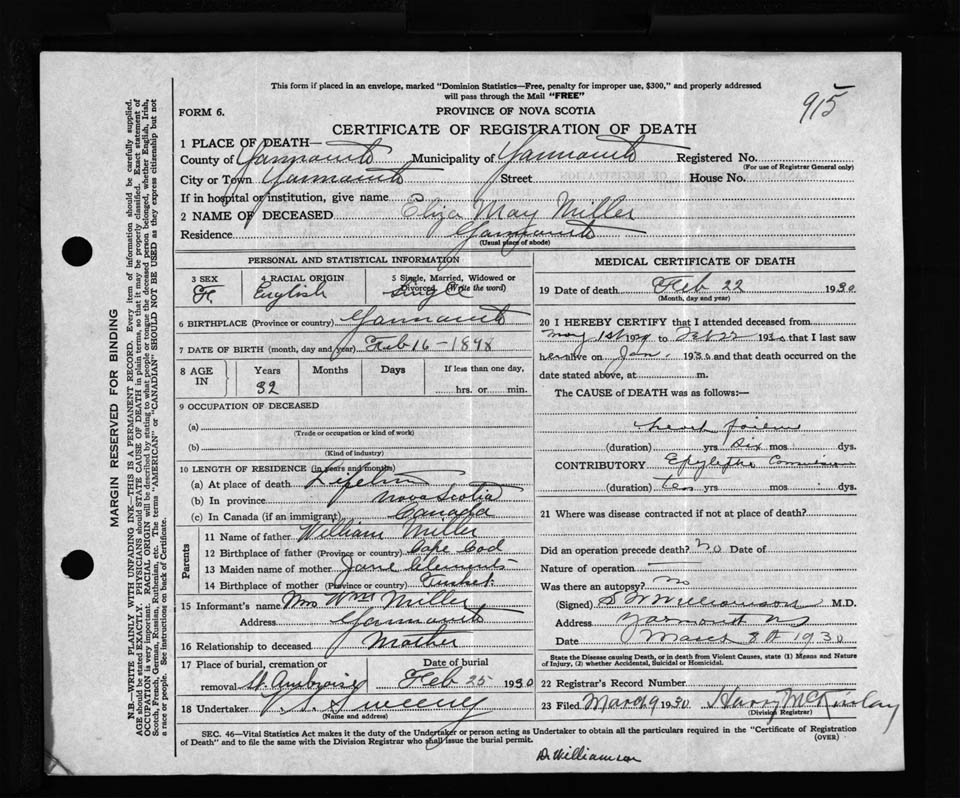 This form if placed in an envelope, marked "Dominion Statistics—Free, penalty for improper use, $300," and properly addressed
will pass through the Mail "FREE"
915
FORM 6.
PROVINCE OF NOVA SCOTIA
CERTIFICATE OF REGISTRATION OF DEATH
1 PLACE OF DEATH—
County of Yarmouth Municipality of Yarmouth Registered No.
(For use of Registrar General only)
City or Town Yarmouth Street House No.
If in hospital or institution, give name
2 NAME OF DECEASED Eliza May Miller
Residence Yarmouth
(Usual place of abode)
PERSONAL AND STATISTICAL INFORMATION
3 SEX 4 RACIAL ORIGIN 5 Single, Married, Widowed or
Divorced (Write the word)
F English Single
6 BIRTHPLACE (Province or country) Yarmouth
7 DATE OF BIRTH (month, day and year) Feb 16-1898
8 AGE IN Years Months Days If less than one day,
32 hrs. or min.
9 OCCUPATION OF DECEASED
(a)
(Trade or occupation or kind of work)
(b)
(Kind of industry)
10 LENGTH OF RESIDENCE (in years and months)
(a) At place of death Lifetime
(b) In province Nova Scotia
(c) In Canada (if an immigrant) Canada
Parents
11 Name of father William Miller
12 Birthplace of father (Province or country) Cape Cod
13 Maiden name of mother Jane Clements
14 Birthplace of mother (Province or country) Tusket
15 Informant's name Mrs Wm Miller
Address Yarmouth
16 Relationship to deceased Mother
17 Place of burial, cremation or Date of burial
removal St Ambroise Feb 25 1930
18 Undertaker V. S. Sweeny
(Name and address)
MEDICAL CERTIFICATE OF DEATH
19 Date of death Feb 22 1930
(Month, day and year)
20 I HEREBY CERTIFY that I attended deceased from
May 1st to Feb 22 1930 that I last saw
her alive on Jan. 1930 and that death occurred on the
date stated above, at m.
The CAUSE of DEATH was as follows:—
heart
(duration) yrs six mos dys.
CONTRIBUTORY
(duration) ten yrs mos dys.
21 Where was disease contracted if not at place of death?
Did an operation precede death? no Date of
Nature of operation
Was there an autopsy? no
(Signed) Williamson M.D.
Address Yarmouth NS
Date March 8th 1930
State the Disease causing Death, or in death from Violent Causes, state (1) Means and Nature
of Injury, (2) whether Accidental, Suicidal or Homicidal.
22 Registrar's Record Number
23 Filed March 9 1930 Harry McKinlay
(Division Registrar)
SEC. 46—Vital Statistics Act makes it the duty of the Undertaker or person acting as Undertaker to obtain all the particulars required in the "Certificate of Registration
of Death" and to file the same with the Division Registrar who shall issue the burial permit.
(OVER)
Dr Williamson
MARGIN RESERVED FOR BINDING
N.B.—WRITE PLAINLY WITH UNFADING INK—THIS IS A PERMANENT RECORD. Every item of information should be carefully supplied.
AGE should be stated EXACTLY. PHYSICIANS should STATE CAUSE OF DEATH in plain terms, so that it may be properly classified. Exact statement of
OCCUPATION is very important. RACIAL ORIGIN will be described by stating to what people or tongue the deceased person belonged, whether English, Irish,
Scotch, French, German, Russian, Ruthenian, etc. The terms "AMERICAN" or "CANADIAN" SHOULD NOT BE USED as they express citizenship but not
a race or people. See instructions on back of Certificate.